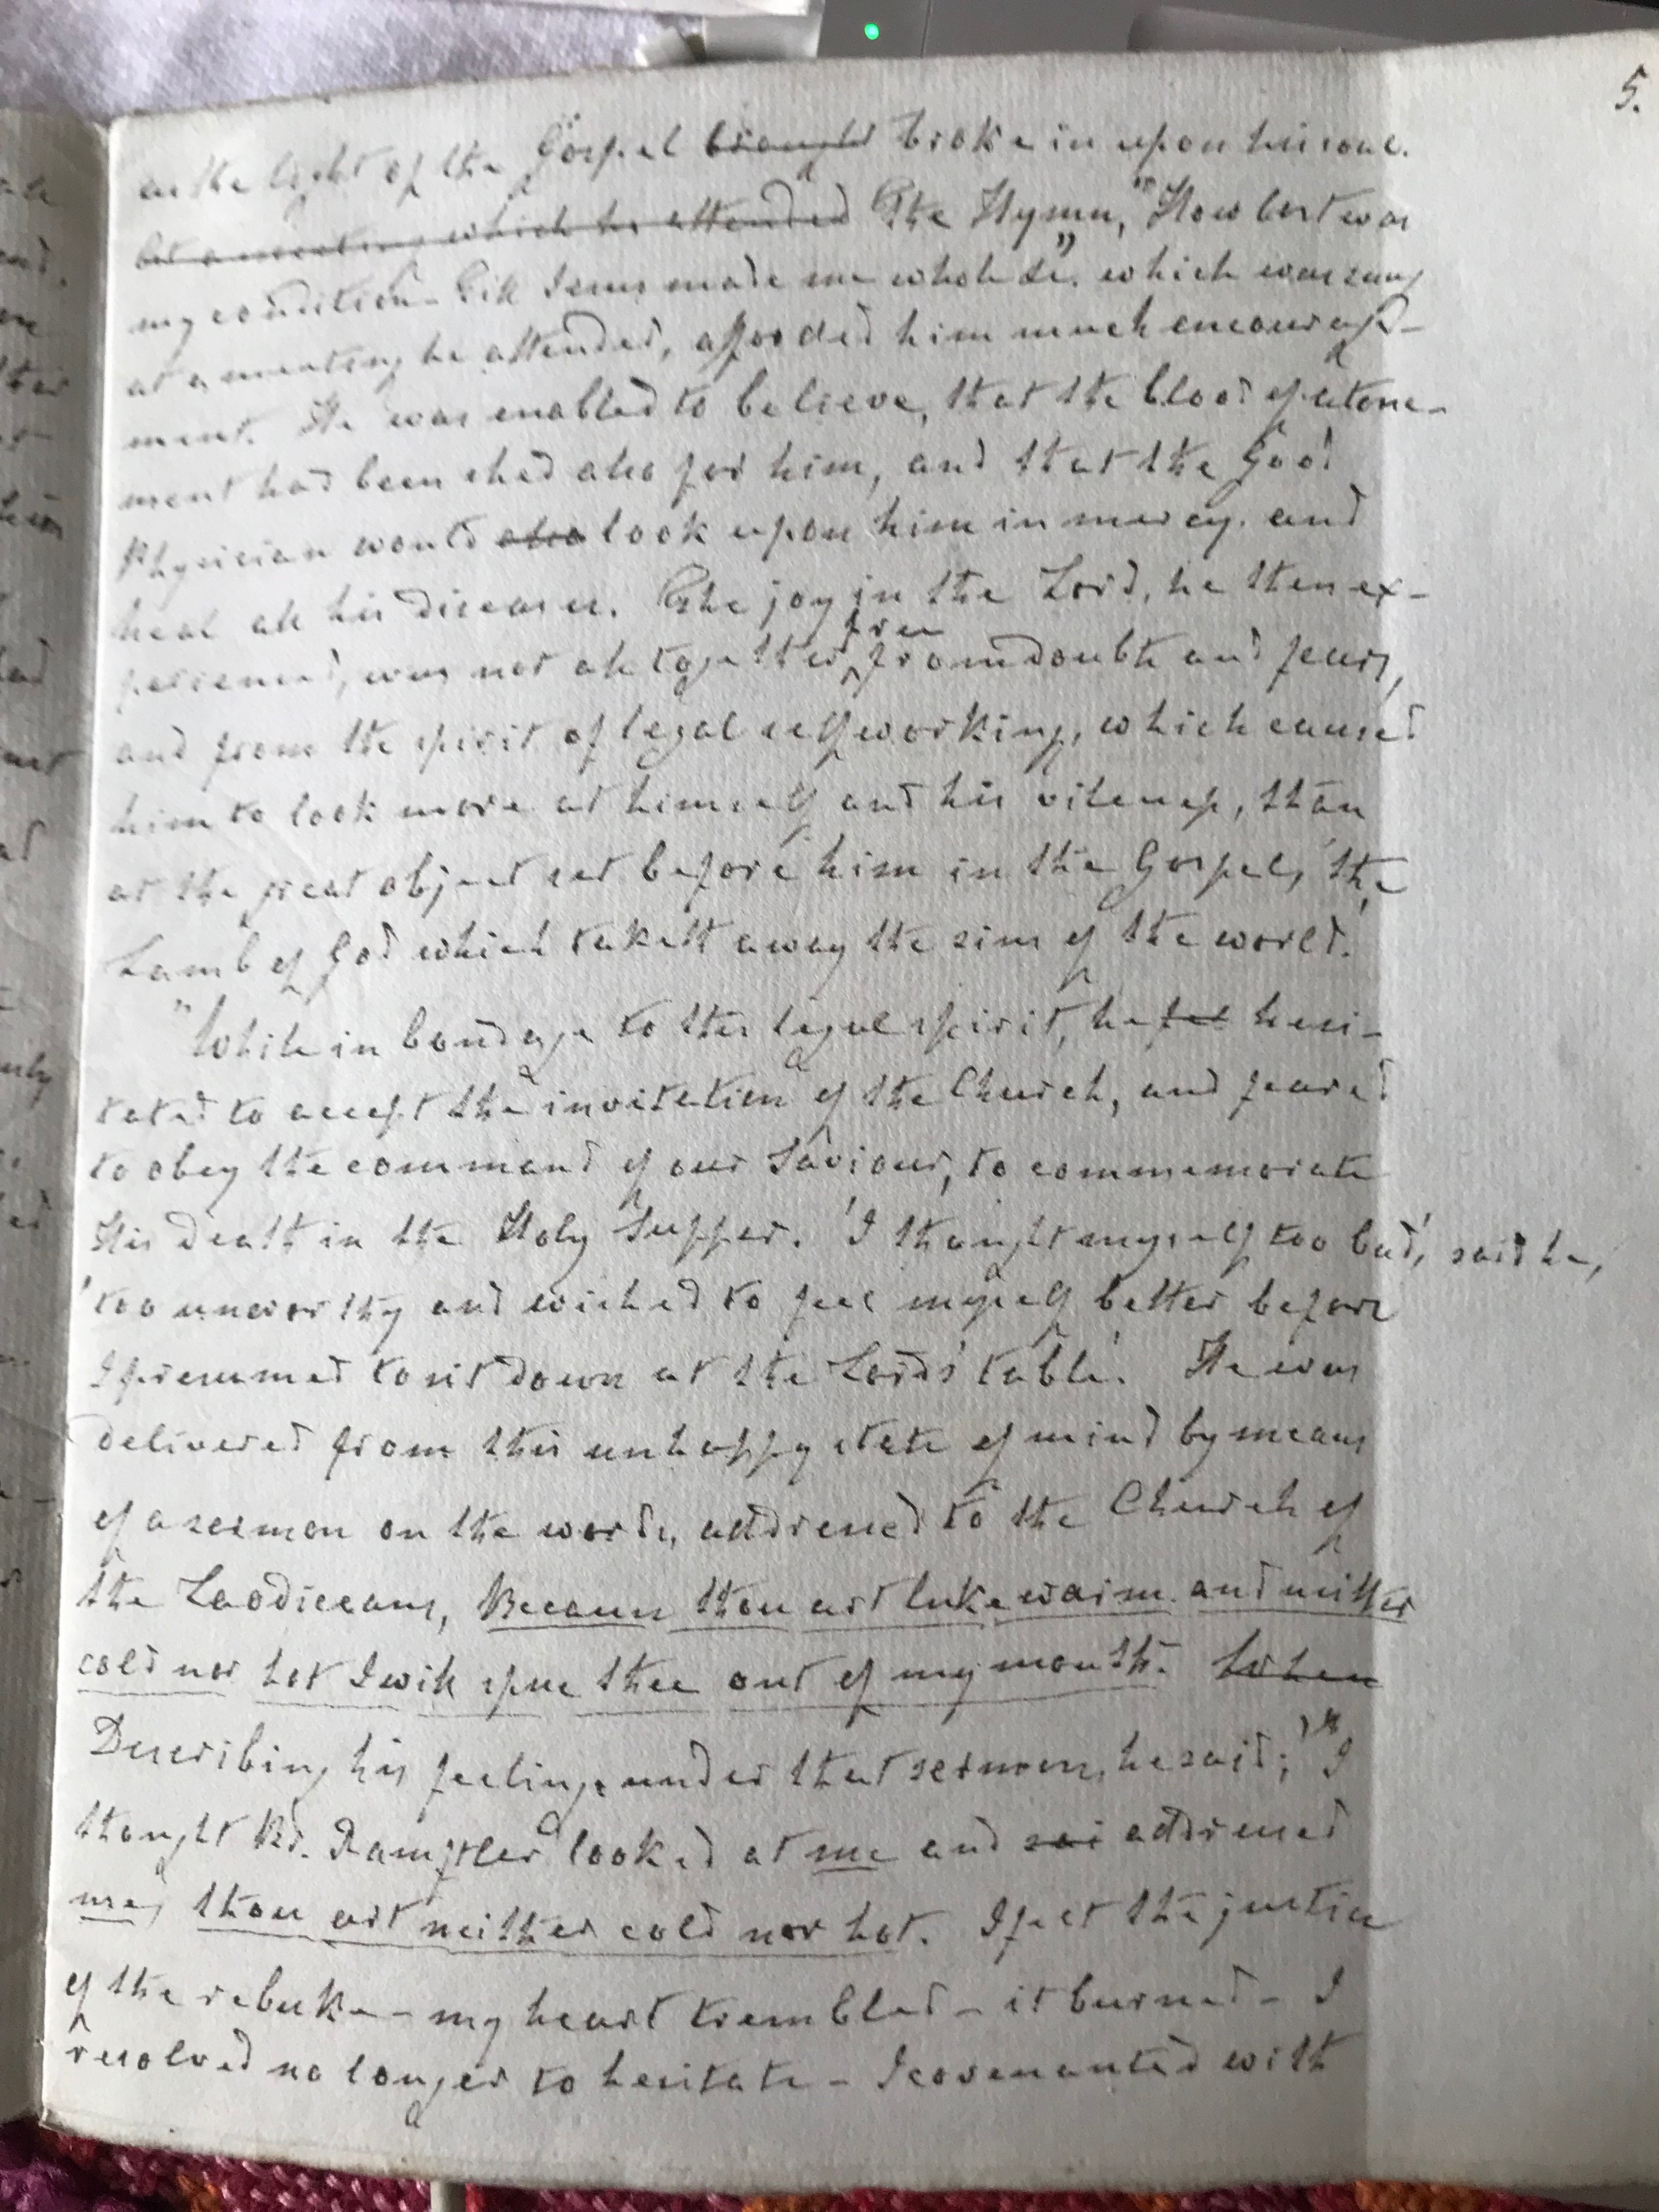 5.
as the light of the Gospel brought broke in upon his soul.
At a meeting which he attended The Hymn, "How lost was
my condition - Till Jesus made me whole &c." which was sung
at a meeting he attended, afforded him much encourage-
ment. He was enabled to believe, that the blood of atone-
ment had been shed also for him, and that the Good
Physician would also look upon him in mercy and
heal all his diseases. The joy in the Lord, he then ex-
perienced, was not altogether free from doubts and fears,
and from the spirit of legal selfworking, which caused
him to look more at himself and his vileness, than
at the great object set before him in the Gospel, 'the
Lamb of God which taketh away the sins of the world.'
"While in bondage to this legal spirit, he fel hesi-
tated to accept the invitation of the Church, and feared
to obey the command of our Saviour, to commemorate
His death in the Holy Supper. 'I thought myself too bad,' said he,
'too unworthy and wished to feel myself better before
I presumed to sit down at the Lord's table.' He was
delivered from this unhappy state of mind by means
of a sermon on the words, addressed to the Church of
the Laodiceans, Because thou art lukewarm and neither
cold nor hot I will spue thee out of my mouth. When
Describing his feelings under that sermon, he said; "I
thought Br. Ramftler looked at me and sai addressed
me, thou art neither cold nor hot. I felt the justice
of the rebuke - my heart trembled - it burned - I
resolved no longer to hesitate - I covenanted with